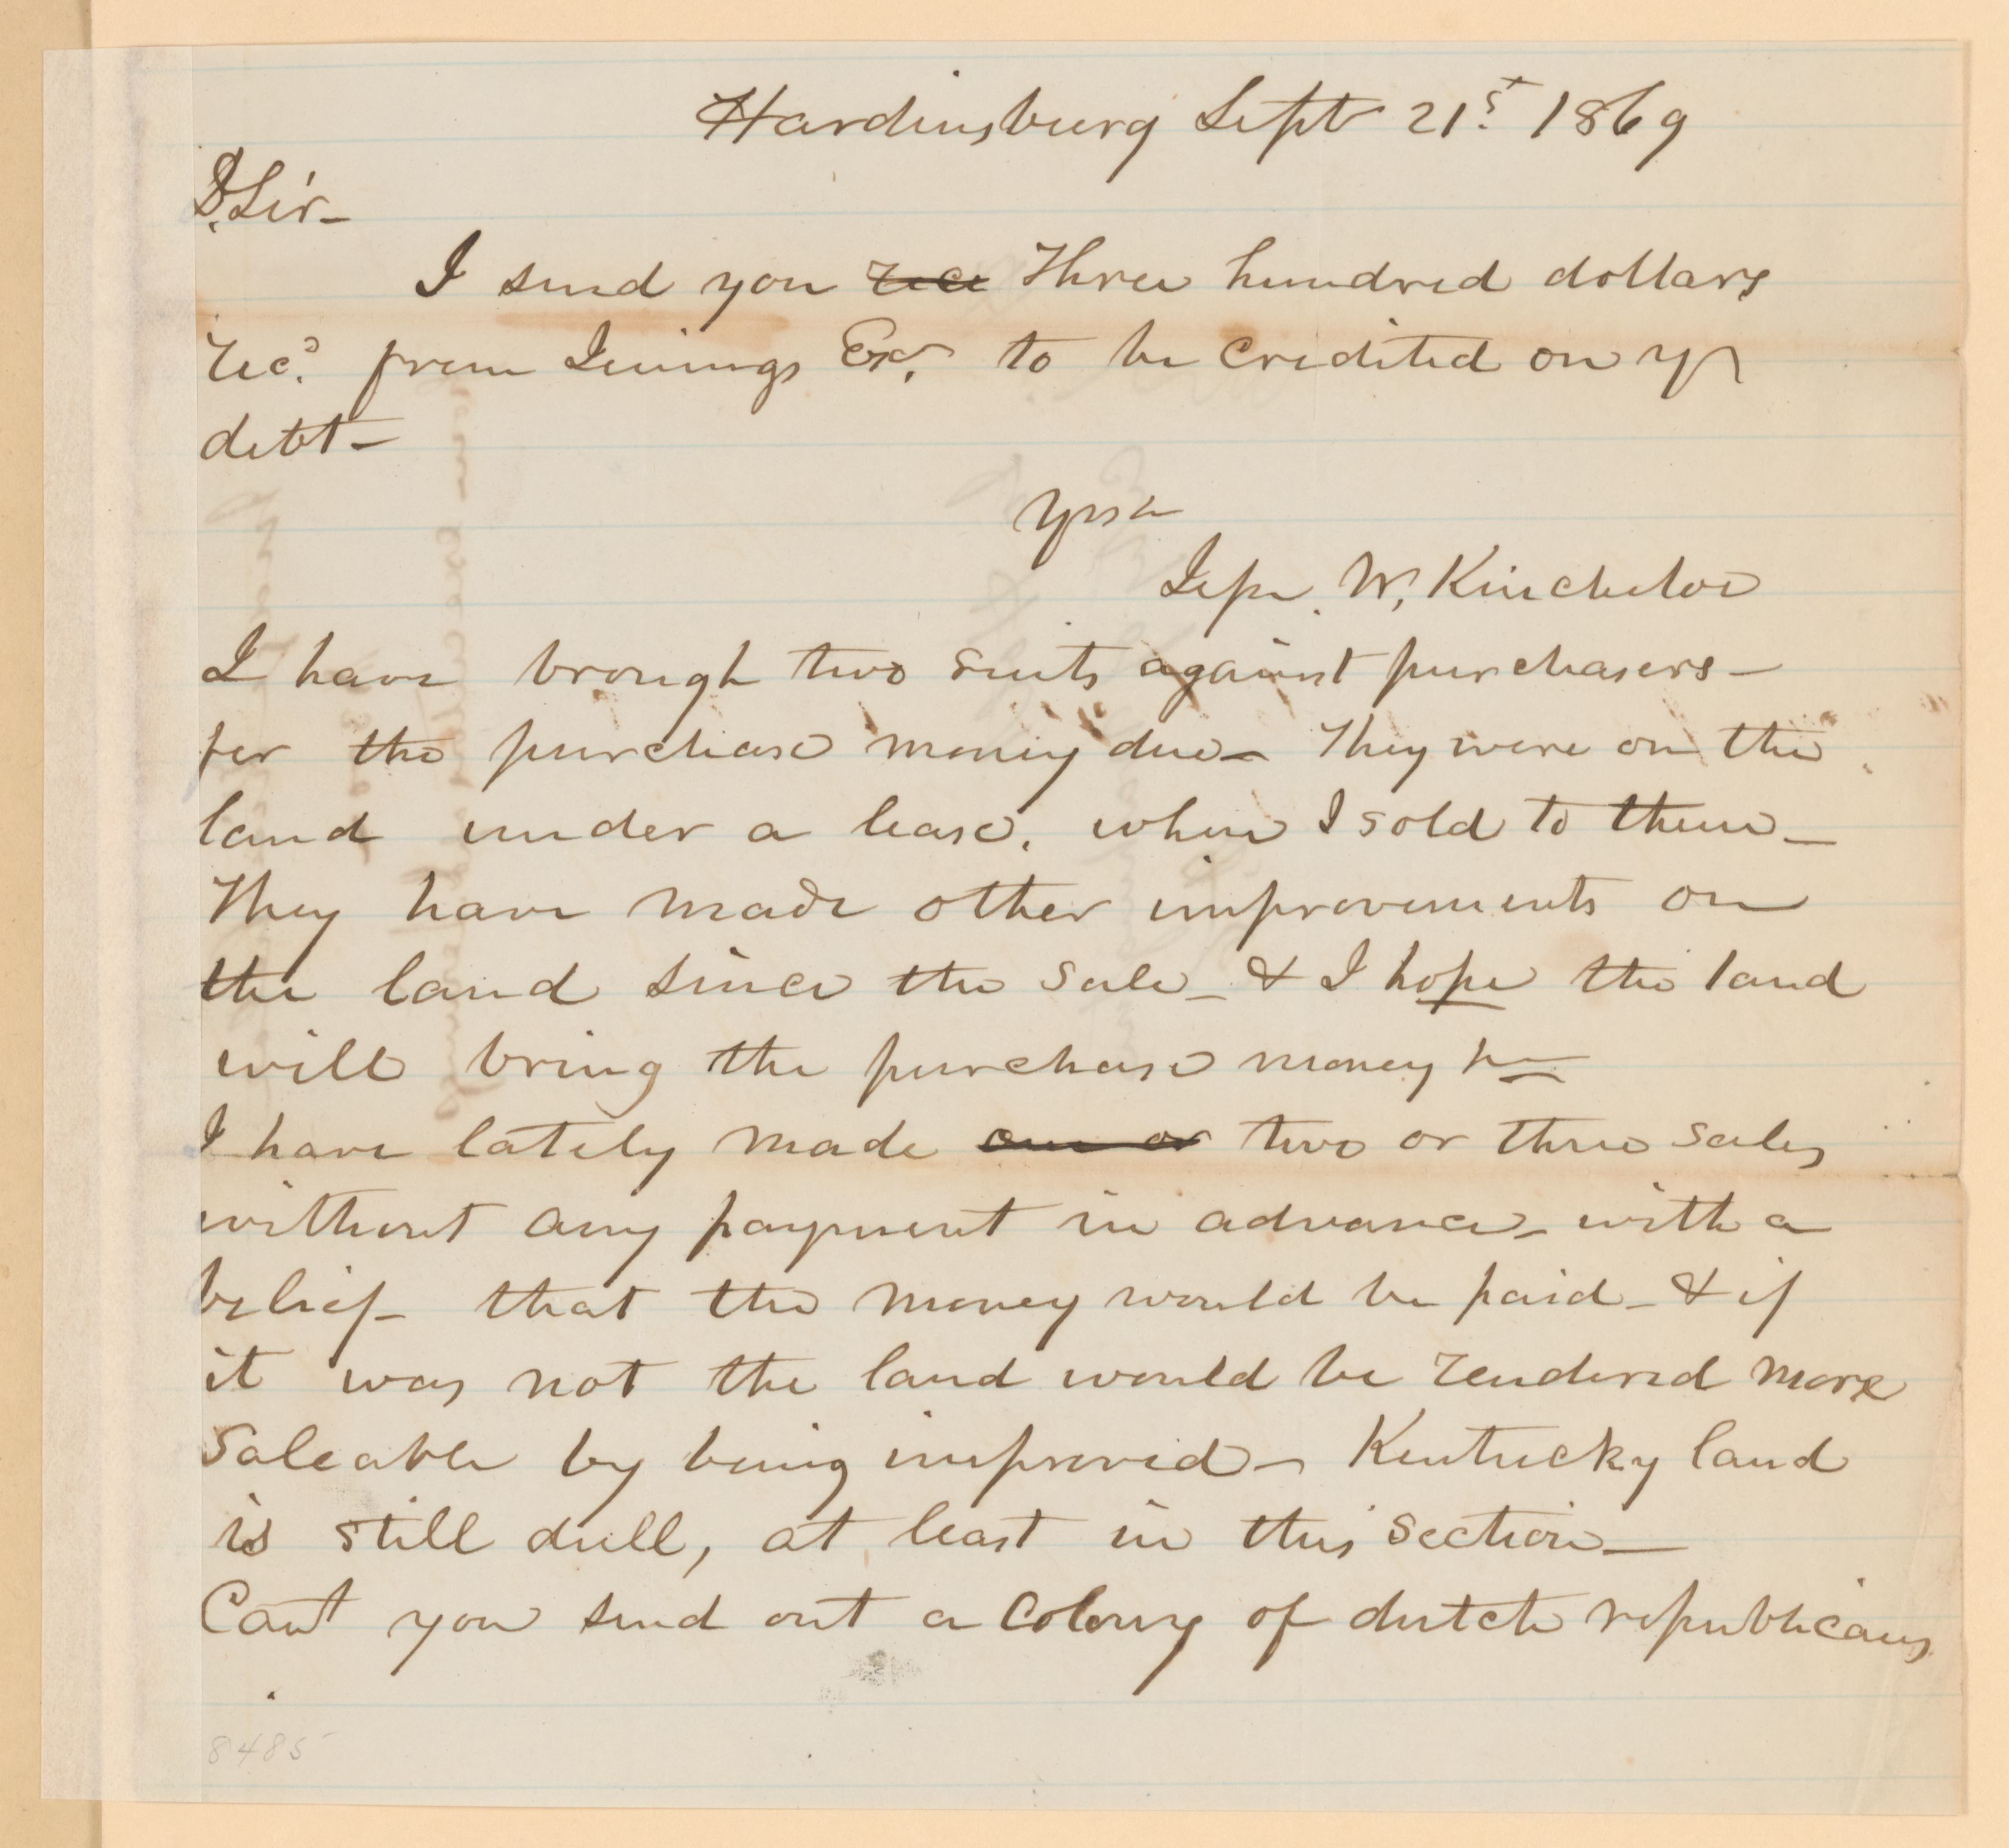 Hardinsburg Sept 21st 1869
D. Sir-
I send you rec Three hundred dollars
recd. from Jenings Exr. to be credited on yr
debt-
Yrs &
Jesse. W. Kincheloe
I have brough two suits against purchasers-
for the purchase money due- They were on the
land under a lease, when I sold to them-
They have made other improvements on
the land since the sale- & I hope the land
will bring the purchase money
I have lately made one or two or three sales
without any payment in advance- with a
belief- that the money would be paid- & if
it was not the land would be rendered more
saleable by being improved- Kentucky land
is still dull, at least in this section-
Cant you send out a Colony of dutch republicans
8485